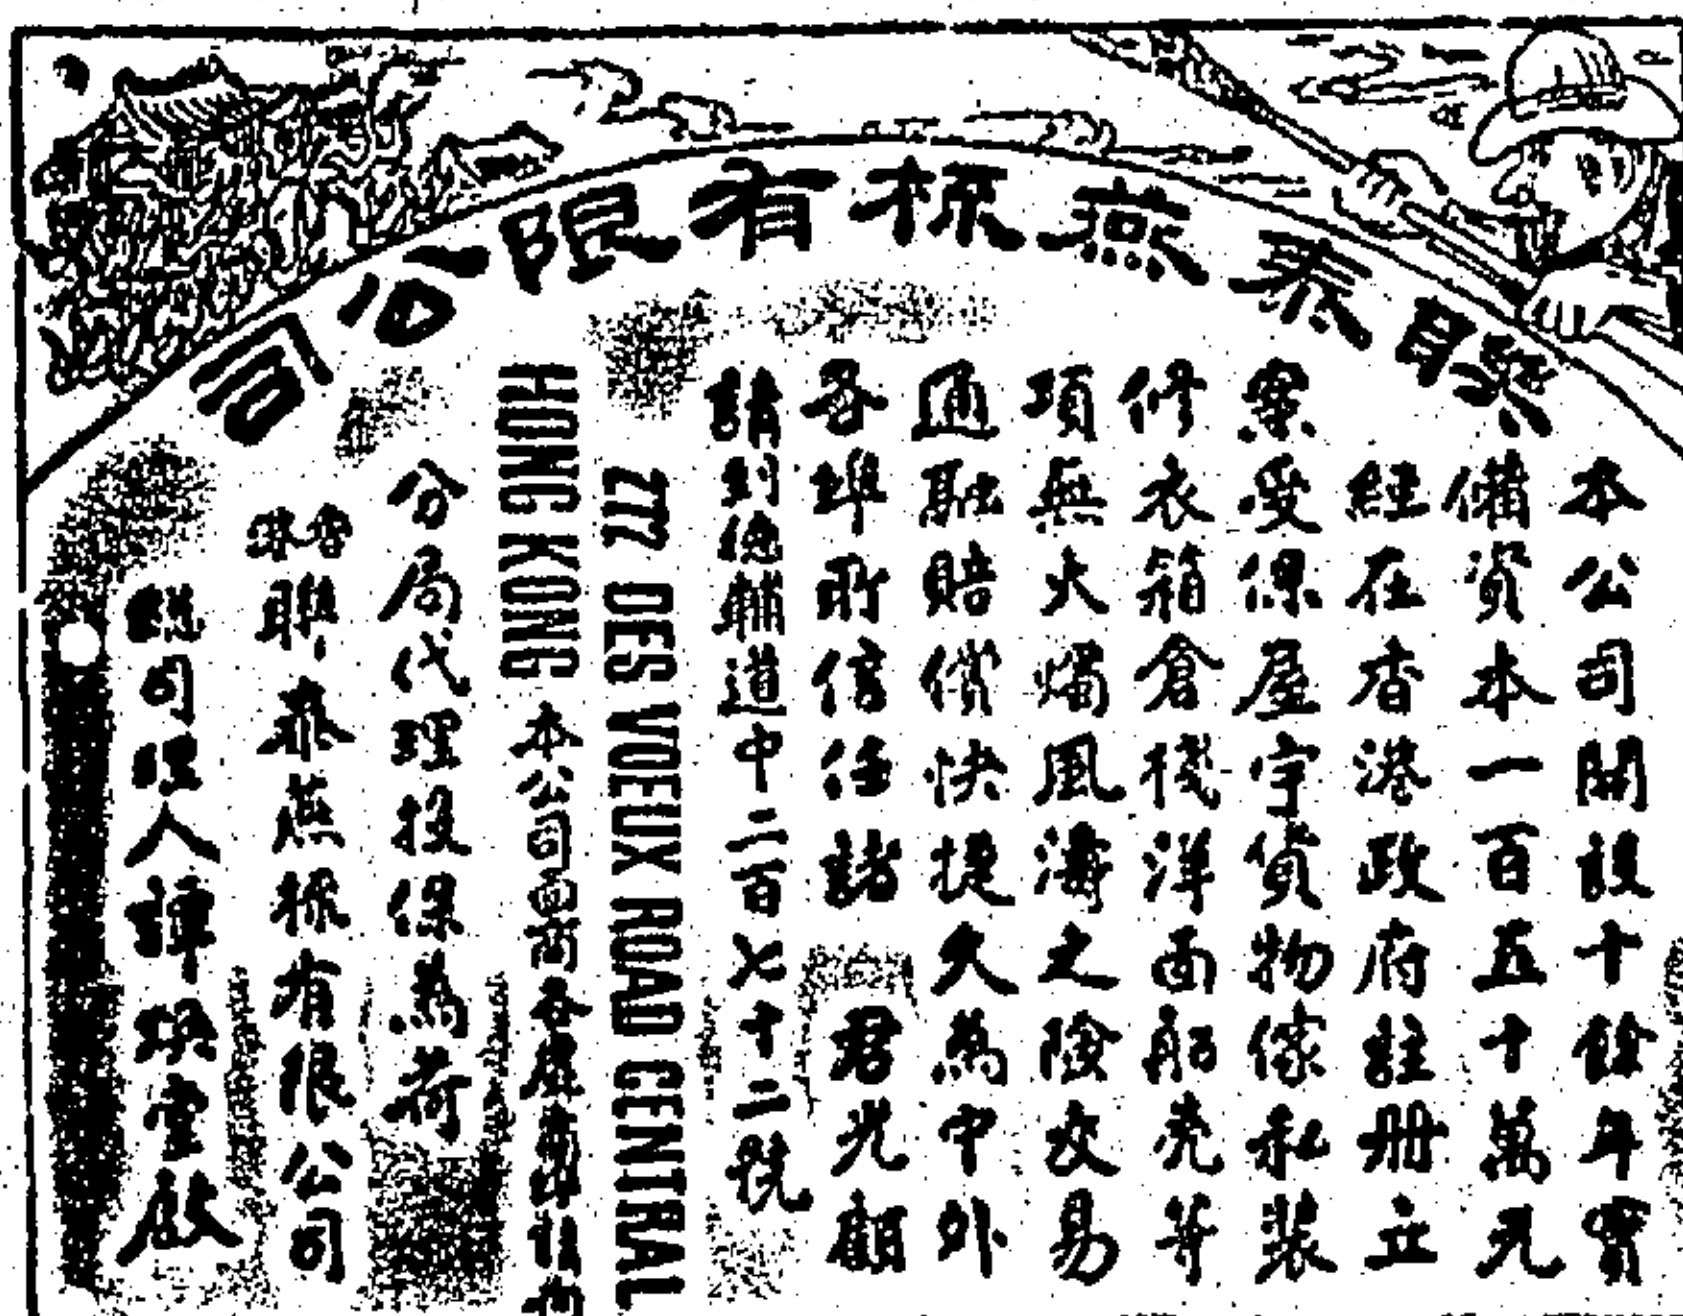 聯泰燕梳有限公司
本公司開設十餘年實
備資本一百五十萬元
經在香港政府註册立
案受保屋宇貨物傢私裝
修衣箱倉棧洋面船壳等
項無火燭風濤之險交易
通融賠償快捷久為中外
各埠所信任諸 君光顧
請到德輔道中二百七十二號
277 DES VOEUX ROAD CENTRAL
HONG KONG 本公司面前各處
分局代理投保為荷
香港聯泰燕梳有限公司
總司理人譚煥堂啟